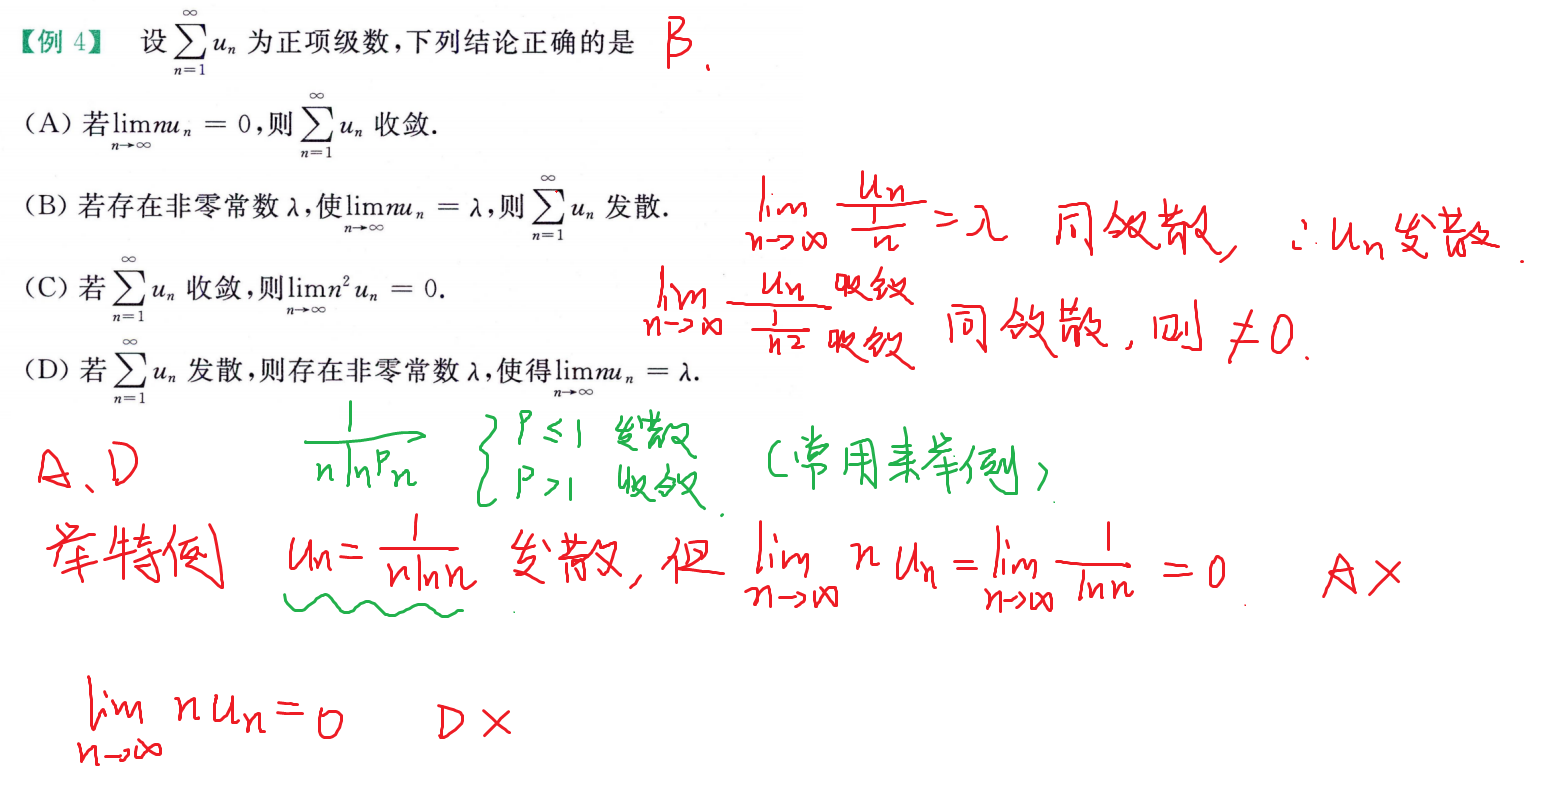 【例 4】 设 $\sum_{n=1}^{\infty} u_n$ 为正项级数,下列结论正确的是 B.
(A) 若 $\lim_{n\to\infty} nu_n = 0$,则 $\sum_{n=1}^{\infty} u_n$ 收敛.
(B) 若存在非零常数 λ,使 $\lim_{n\to\infty} nu_n = λ$,则 $\sum_{n=1}^{\infty} u_n$ 发散.
$\lim_{n\to\infty} \frac{u_n}{\frac{1}{n}} = λ$ 同敛散, ∴ $u_n$ 发散.
(C) 若 $\sum_{n=1}^{\infty} u_n$ 收敛,则 $\lim_{n\to\infty} n^2 u_n = 0$.
$\lim_{n\to\infty} \frac{u_n}{\frac{1}{n^2}}$ 收敛 收敛 同敛散, 则 ≠0.
(D) 若 $\sum_{n=1}^{\infty} u_n$ 发散,则存在非零常数 λ,使得 $\lim_{n\to\infty} nu_n = λ$.
A、D $\frac{1}{n\ln^p n}$ { P≤1 发散 P>1 收敛. (常用来举例)
举特例 $u_n = \frac{1}{n\ln n}$ 发散, 但 $\lim_{n\to\infty} n u_n = \lim_{n\to\infty} \frac{1}{\ln n} = 0$. A ×
$\lim_{n\to\infty} n u_n = 0$ D ×